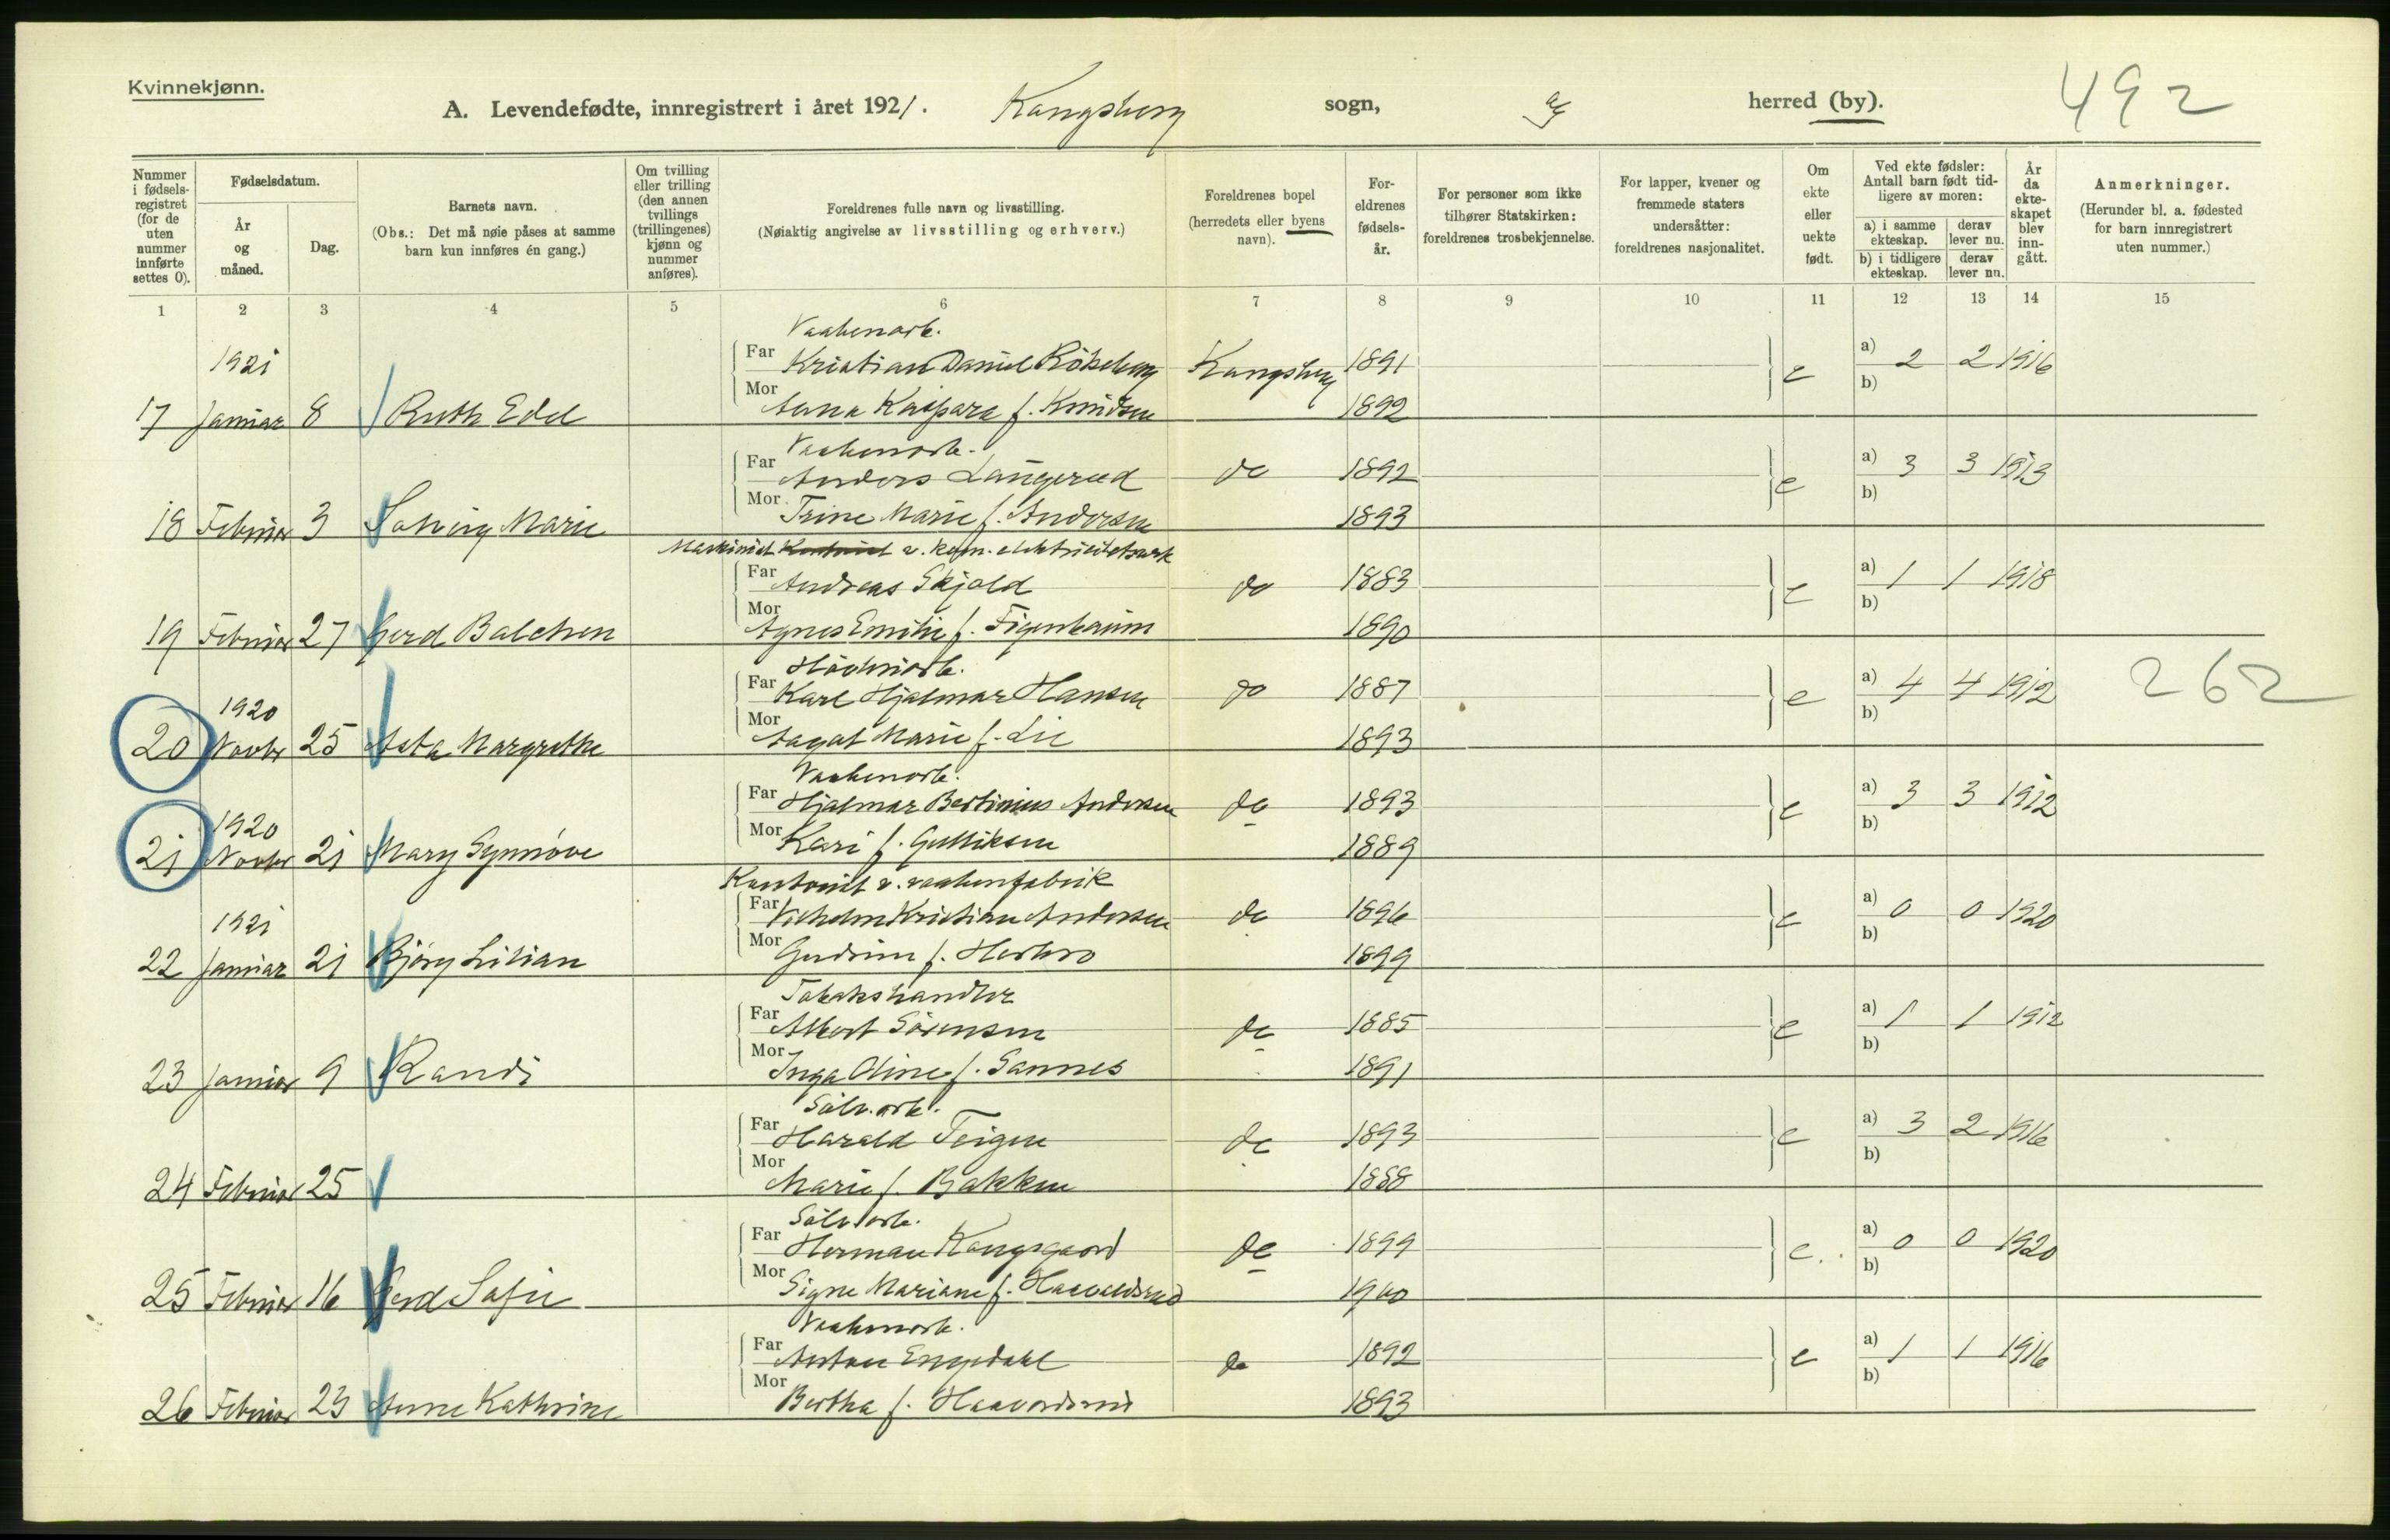 Kvinnekjønn.
A. Levendefødte, innregistrert i året 1921. Kongsberg sogn, herred (by). 492
Nummer i fødselsregistret (for de uten nummer innførte settes 0).
Fødselsdatum.
År og måned.
Dag.
Barnets navn.
(Obs.: Det må nøie påses at samme barn kun innføres én gang.)
Om tvilling eller trilling (den annen tvillings (trillingenes) kjønn og nummer anføres).
Foreldrenes fulle navn og livsstilling.
(Nøiaktig angivelse av livsstilling og erhverv.)
Foreldrenes bopel (herredets eller byens navn).
Foreldrenes fødselsår.
For personer som ikke tilhører Statskirken: foreldrenes trosbekjennelse.
For lapper, kvener og fremmede staters undersåtter: foreldrenes nasjonalitet.
Om ekte eller uekte født.
Ved ekte fødsler: Antall barn født tidligere av moren:
a) i samme ekteskap. derav lever nu.
b) i tidligere ekteskap. derav lever nu.
År da ekteskapet blev inngått.
Anmerkninger.
(Herunder bl. a. fødested for barn innregistrert uten nummer.)
1 2 3 4 5 6 7 8 9 10 11 12 13 14 15
Vaabenarb.
1921 Far Kristian Daniel Rökeberg Kongsberg 1891 e a) 2 2 1916
b)
17 Januar 8 Ruth Edel Mor Anna Kaspara f. Knudsen 1892
Vaabenarb.
Far Anders Langerud do 1892 e a) 3 3 1913
b)
18 Februar 3 Solveig Marie Mor Trine Marie f. Andersen 1893
Maskinist v. kom. elektricitetsverk
Far Andreas Skjold do 1883 e a) 1 1 1918
b)
19 Februar 27 Gerd Balchen Mor Agnes Emilie f. Figenbaum 1890
1920 Far Karl Hjalmar Hansen do 1887 e a) 4 4 1912 262
b)
20 Novbr 25 Asta Margrethe Mor Aagot Marie f. Lie 1893
Vaabenarb.
1920 Far Hjalmar Bertinius Andersen do 1893 e a) 3 3 1912
b)
21 Novbr 21 Mary Synnöve Mor Kari f. Gulliksen 1889
Kontorist v. vaabenfabrik
1921 Far Vilhelm Kristian Andersen do 1896 e a) 0 0 1920
b)
22 Januar 21 Björg Lilian Mor Gudrun f. Herbro 1899
Tobakshandler
Far Albert Sörensen do 1885 e a) 1 1 1912
b)
23 Januar 9 Randi Mor Inga Oline f. Sannes 1891
Sölv. arb.
Far Harald Teigen do 1893 e a) 3 2 1916
b)
24 Februar 25 Mor Marie f. Bakken 1888
Sölv. arb.
Far Herman Kongsgaard do 1899 e. a) 0 0 1920
b)
25 Februar 16 Gerd Sofie Mor Signe Mariane f. Haavaldsrud 1900
Vaabenarb.
Far Anton Engedahl do 1892 e a) 1 1 1916
b)
26 Februar 23 Anne Kathrine Mor Bertha f. Haavardsrud 1893